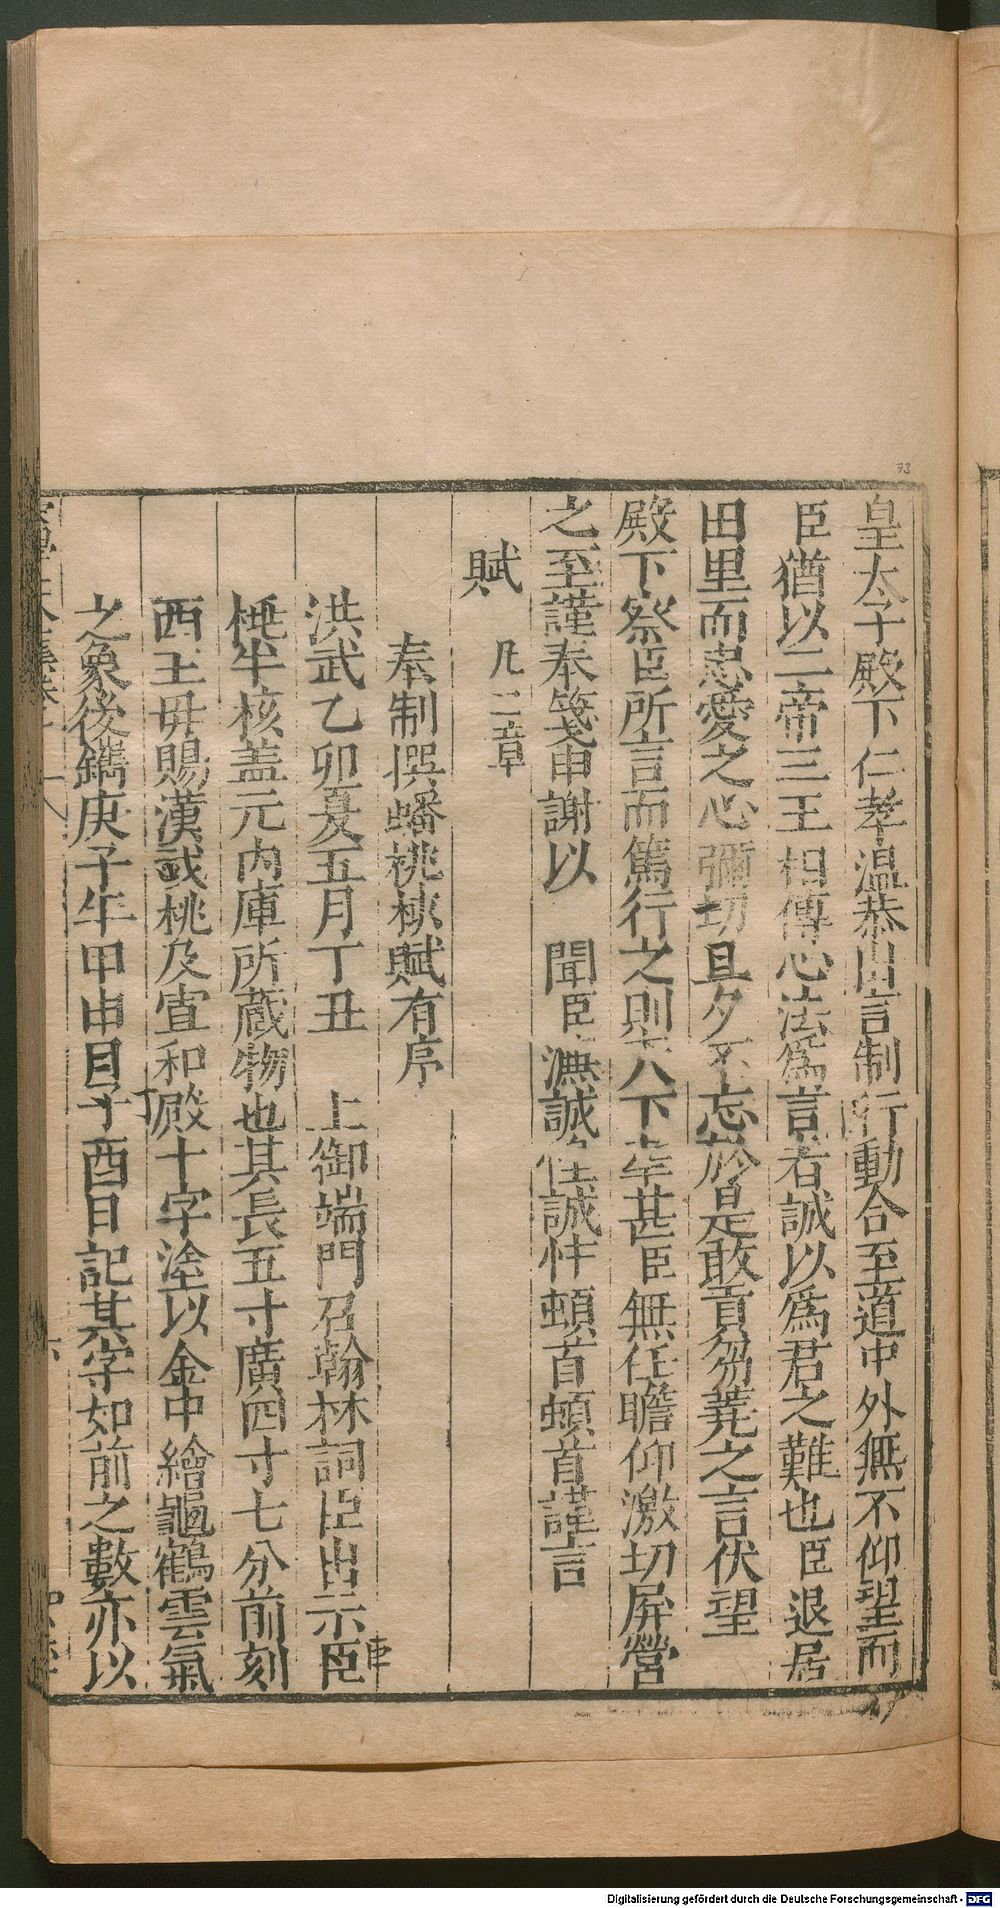 73
皇太子殿下仁孝溫恭出言制行動合至道中外無不仰望而
臣猶以二帝三王相傳心法爲言者誠以爲君之難也臣退居
田里而忠愛之心彌切旦夕不忘於是敢貢芻蕘之言伏望
殿下祭臣所言而篤行之則天下幸甚臣無任瞻仰激切屏營
之至謹奉箋申謝以 聞臣濂誠惶誠忭頓首頓首謹言
賦 凡二章
奉制撰蟠桃核賦有序
洪武乙卯夏五月丁丑 上御端門召翰林詞臣出示臣
桃半核蓋元內庫所藏物也其長五寸廣四寸七分前刻
西王母賜漢武桃及宣和殿十字塗以金中繪龜鶴雲氣
之象後鐫庚子年甲申月丁酉日記其字如前之數亦以
Digitalisierung gefördert durch die Deutsche Forschungsgemeinschaft - DFG